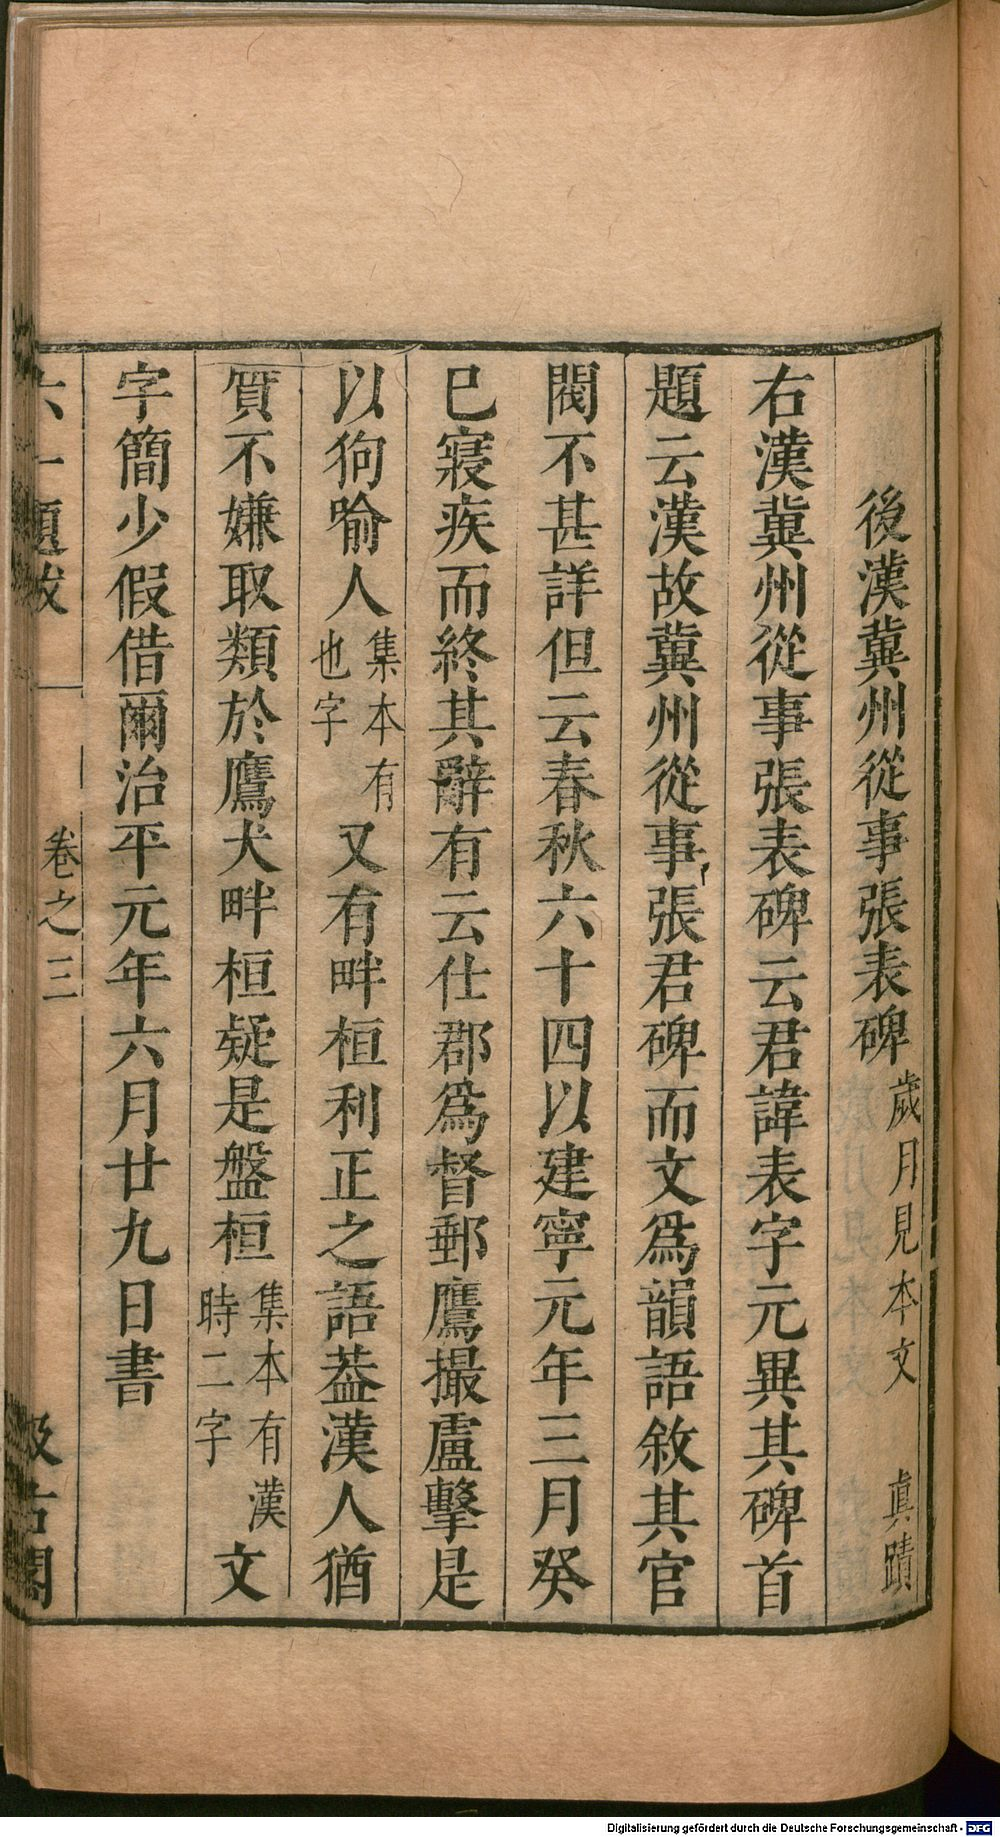 後漢冀州從事張表碑 歲月見本文 眞蹟
右漢冀州從事張表碑云君諱表字元異其碑首
題云漢故冀州從事張君碑而文爲韻語敘其官
閥不甚詳但云春秋六十四以建寧元年三月癸
巳寢疾而終其辭有云仕郡爲督郵鷹撮盧擊是
以狗喻人集本有也字又有畔桓利正之語葢漢人猶
質不嫌取類於鷹犬畔桓疑是盤桓集本有漢時二字文
字簡少假借爾治平元年六月廿九日書
六一題跋 卷之三 汲古閣
Digitalisierung gefördert durch die Deutsche Forschungsgemeinschaft - DFG